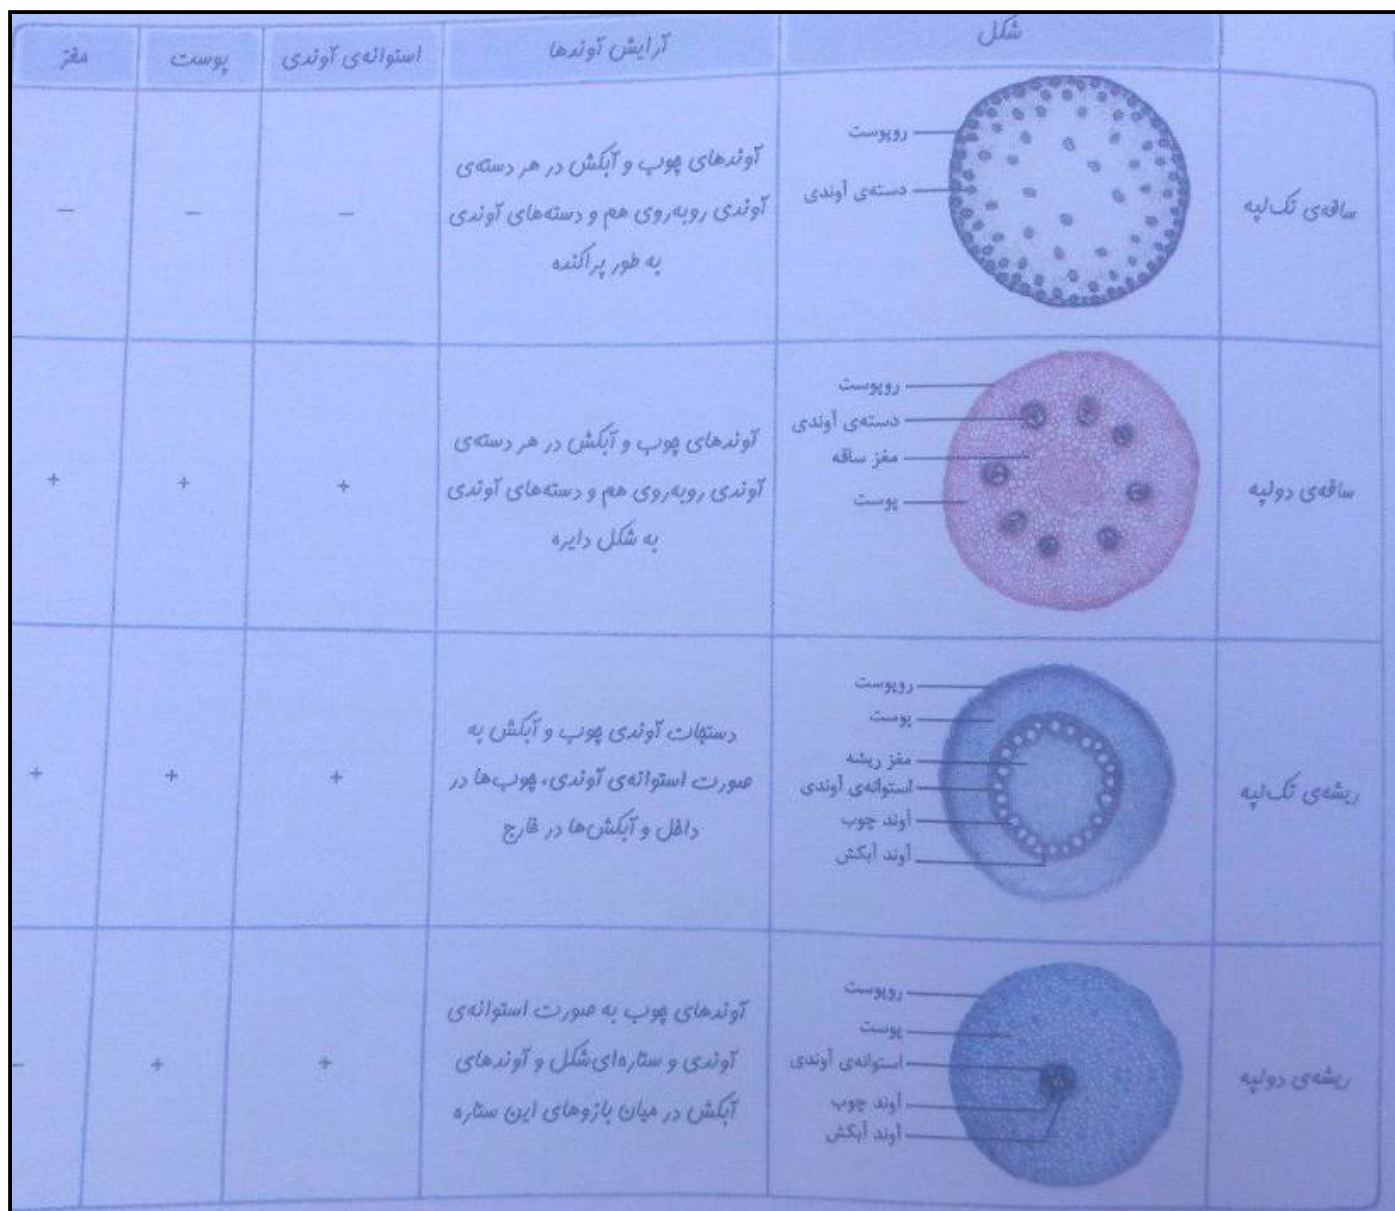 شکل
آرایش آوندها
استوانه‌ی آوندی
پوست
مغز
ساقه‌ی تک‌لپه
روپوست
دسته‌ی آوندی
آوندهای چوب و آبکش در هر دسته‌ی
آوندی روبه‌روی هم و دسته‌های آوندی
به طور پراکنده
–
–
–
ساقه‌ی دولپه
روپوست
دسته‌ی آوندی
مغز ساقه
پوست
آوندهای چوب و آبکش در هر دسته‌ی
آوندی روبه‌روی هم و دسته‌های آوندی
به شکل دایره
+
+
+
ریشه‌ی تک‌لپه
روپوست
پوست
مغز ریشه
استوانه‌ی آوندی
آوند چوب
آوند آبکش
دستجات آوندی چوب و آبکش به
صورت استوانه‌ی آوندی، چوب‌ها در
داخل و آبکش‌ها در خارج
+
+
+
ریشه‌ی دولپه
روپوست
پوست
استوانه‌ی آوندی
آوند چوب
آوند آبکش
آوندهای چوب به صورت استوانه‌ی
آوندی و ستاره‌ای‌شکل و آوندهای
آبکش در میان بازوهای این ستاره
+
+
–